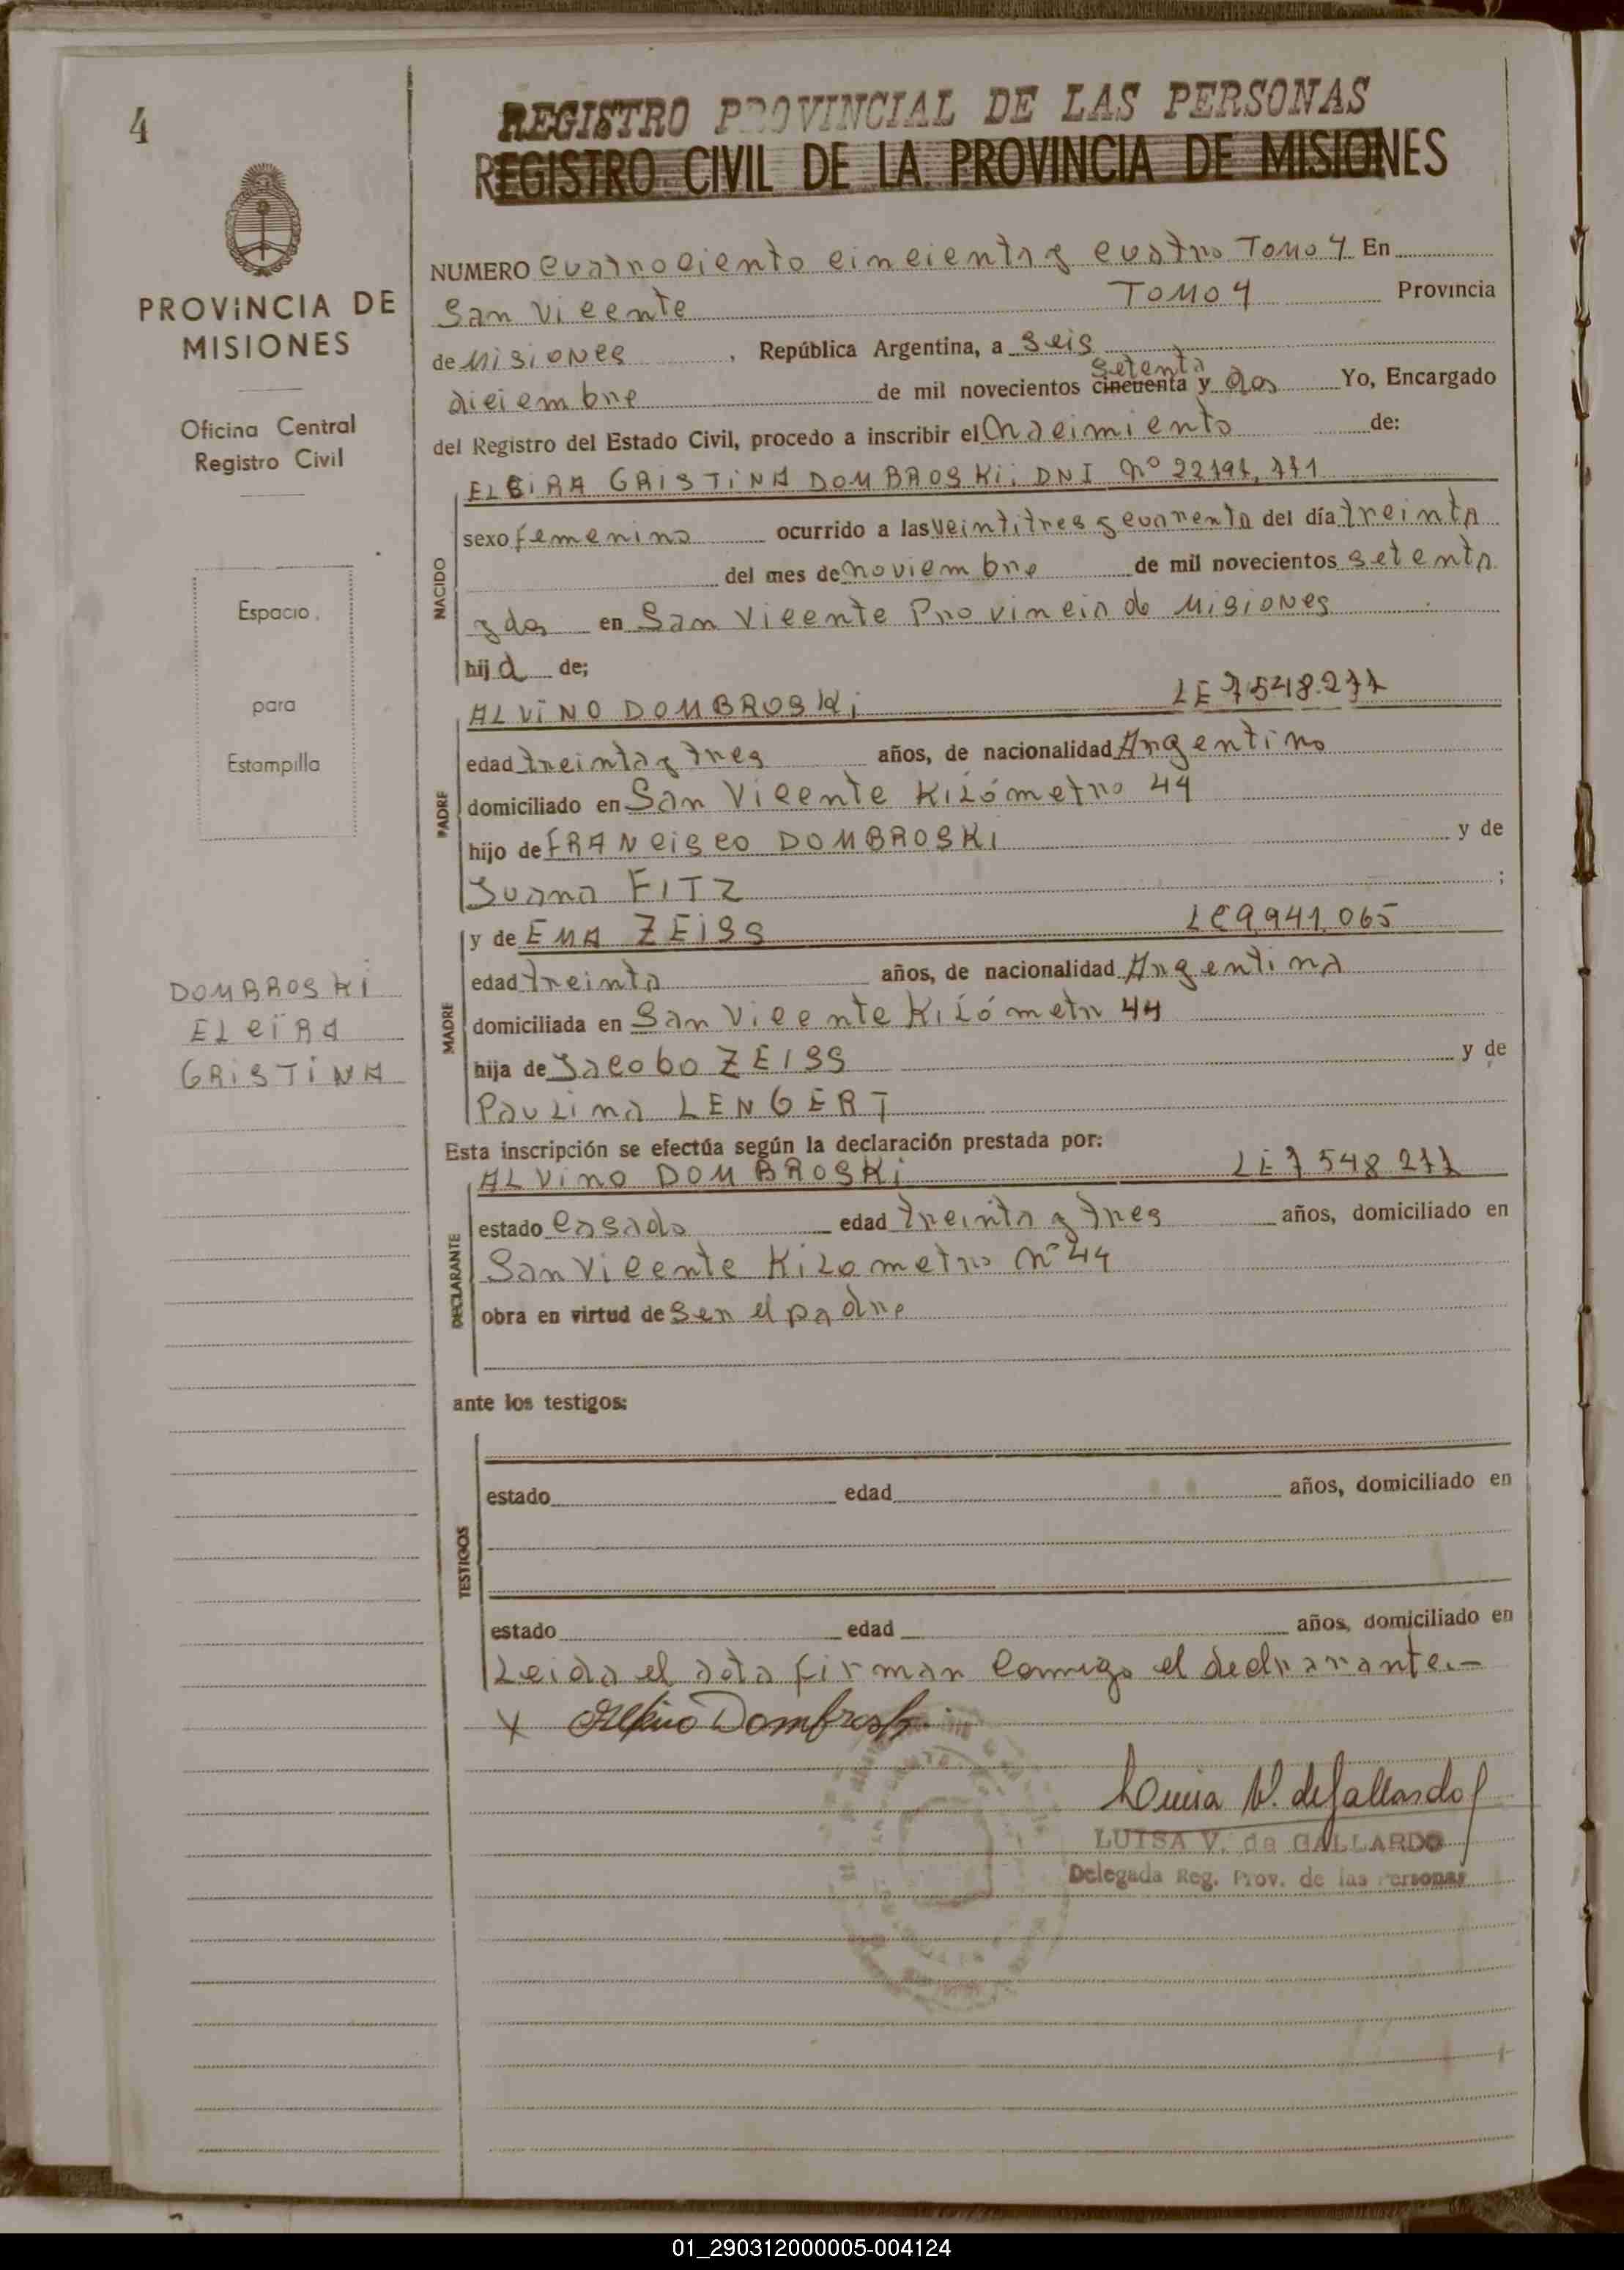 4
REGISTRO PROVINCIAL DE LAS PERSONAS
REGISTRO CIVIL DE LA PROVINCIA DE MISIONES
PROVINCIA DE
MISIONES
Oficina Central
Registro Civil
Espacio
para
Estampilla
DOMBROSKI
ELCIRA
CRISTINA
NUMERO cuatrociento cincienta y cuatro Tomo 4 En
San Vicente Tomo 4 Provincia
de Misiones, República Argentina, a seis
setenta
diciembre de mil novecientos cincuenta y dos Yo, Encargado
del Registro del Estado Civil, procedo a inscribir el nacimiento de:
ELCIRA CRISTINA DOMBROSKI; DNI Nº
NACIDO
sexo femenino ocurrido a las veintitres y cuarenta del día treinta
del mes de noviembre de mil novecientos setenta
y dos en San Vicente Provincia de Misiones
hija de;
PADRE
ALVINO DOMBROSKi LE 7.548.277
edad treinta y tres años, de nacionalidad Argentino
domiciliado en San Vicente Kilómetro 44
hijo de FRANCISCO DOMBROSKI y de
Juana FITZ ;
MADRE
y de EMA ZEISS LC 9.941.065
edad treinta años, de nacionalidad Argentina
domiciliada en San Vicente Kilómetro 44
hija de Jacobo ZEISS y de
Paulina LENGERT
Esta inscripción se efectúa según la declaración prestada por:
DECLARANTE
ALVINO DOMBROSKi LE 7 548 277
estado casado edad treinta y tres años, domiciliado en
San Vicente Kilometro Nº 44
obra en virtud de ser el padre
ante los testigos:
TESTIGOS
estado edad años, domiciliado en
estado edad años, domiciliado en
Leida el acta firman conmigo el declarante.-
X Alvino Dombroski
Luisa V. de Gallardo
LUISA V. de GALLARDO
Delegada Reg. Prov. de las Personas
01_290312000005-004124